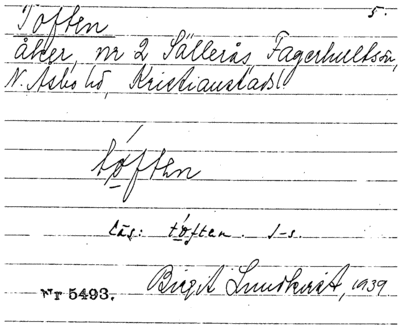 Toften 5.
åker, nr 2 Sällerås, Fagerhultssn,
N. Åsbo hd, Kristianstads l
tóften
Läs: tóften. J-s.
Nr 5493. Birgit Lundkvist, 1939